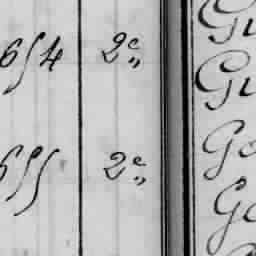 654 2e„
655 2e„
Gu
Gu
Go
Go